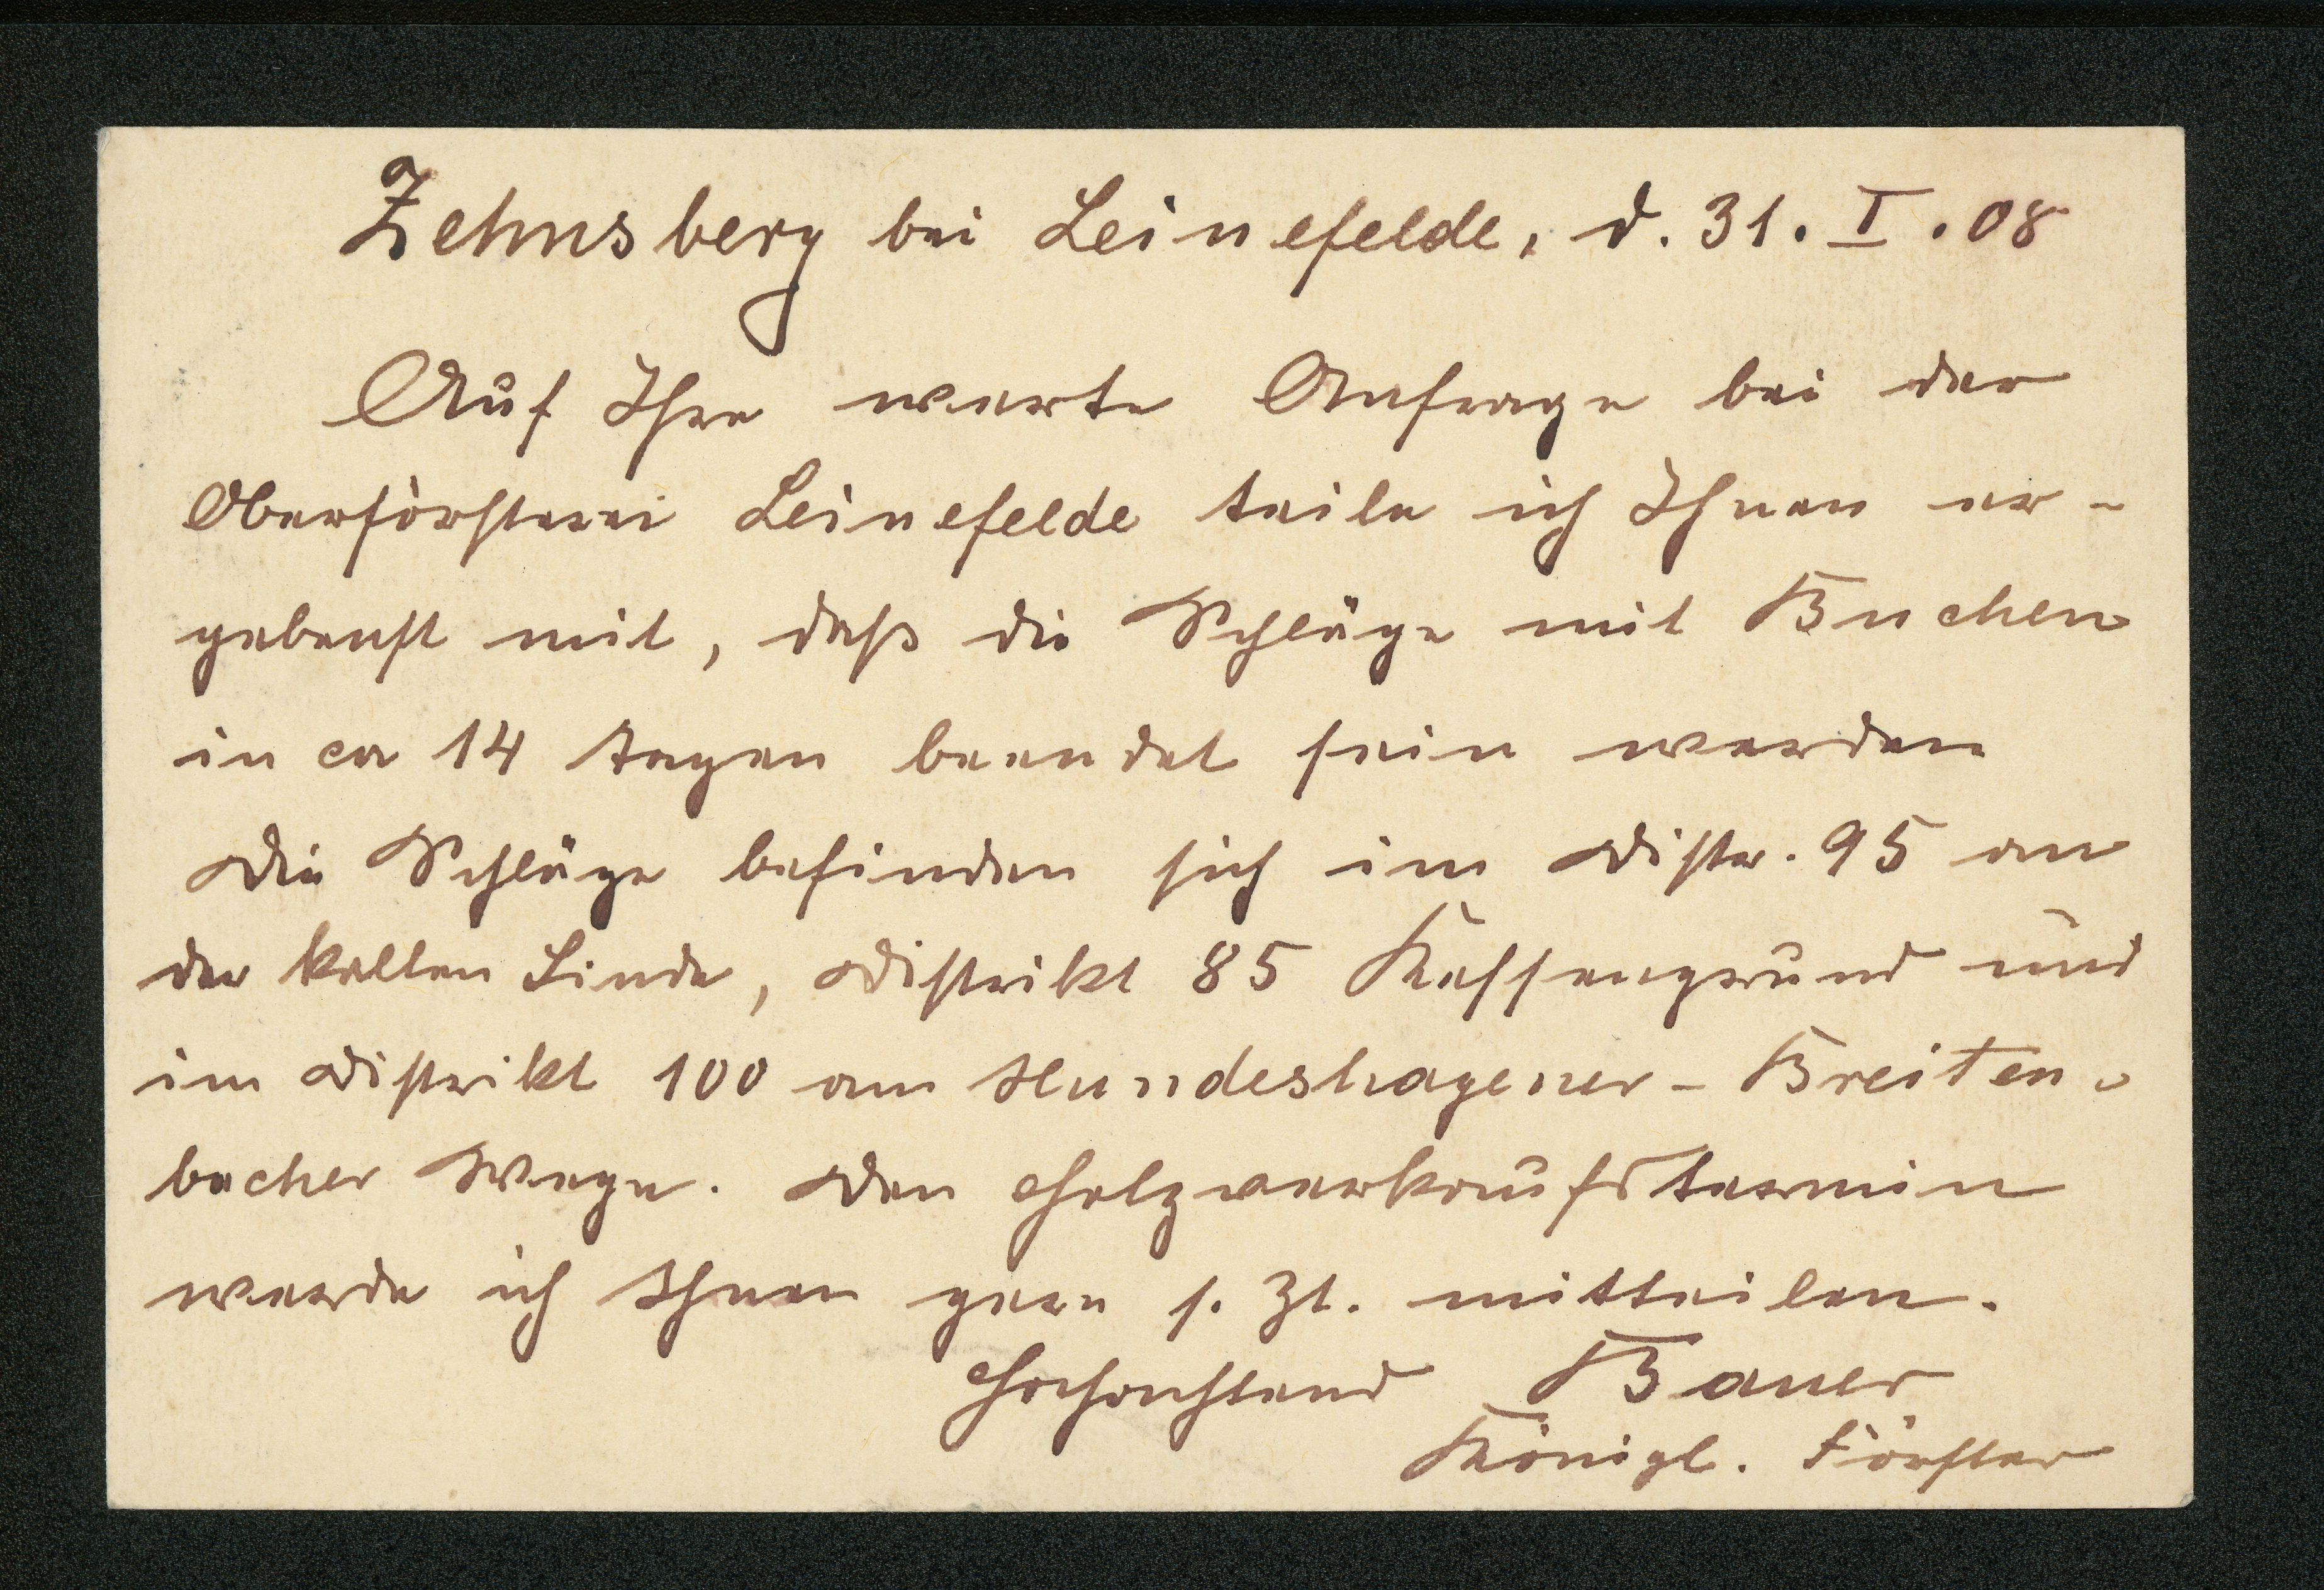 Zehnsberg bei Leinefelde, d. 31. I. 08
Auf Ihre werte Anfrage bei der
Oberförsterei Leinefelde teile ich Ihnen er-
gebenst mit, daß die Schläge mit Buchen
in ca 14 Tagen beendet sein werden
Die Schläge befinden sich im Distr. 95 an
der kalten Linde, Distrikt 85 Kassengrund und
im Distrikt 100 am Hundeshagener-Breiten-
bacher Wege. Den Holzverkaufstermin
werde ich Ihnen gern s. Zt. mitteilen.
Hochachtend Bauer
Königl. Förster